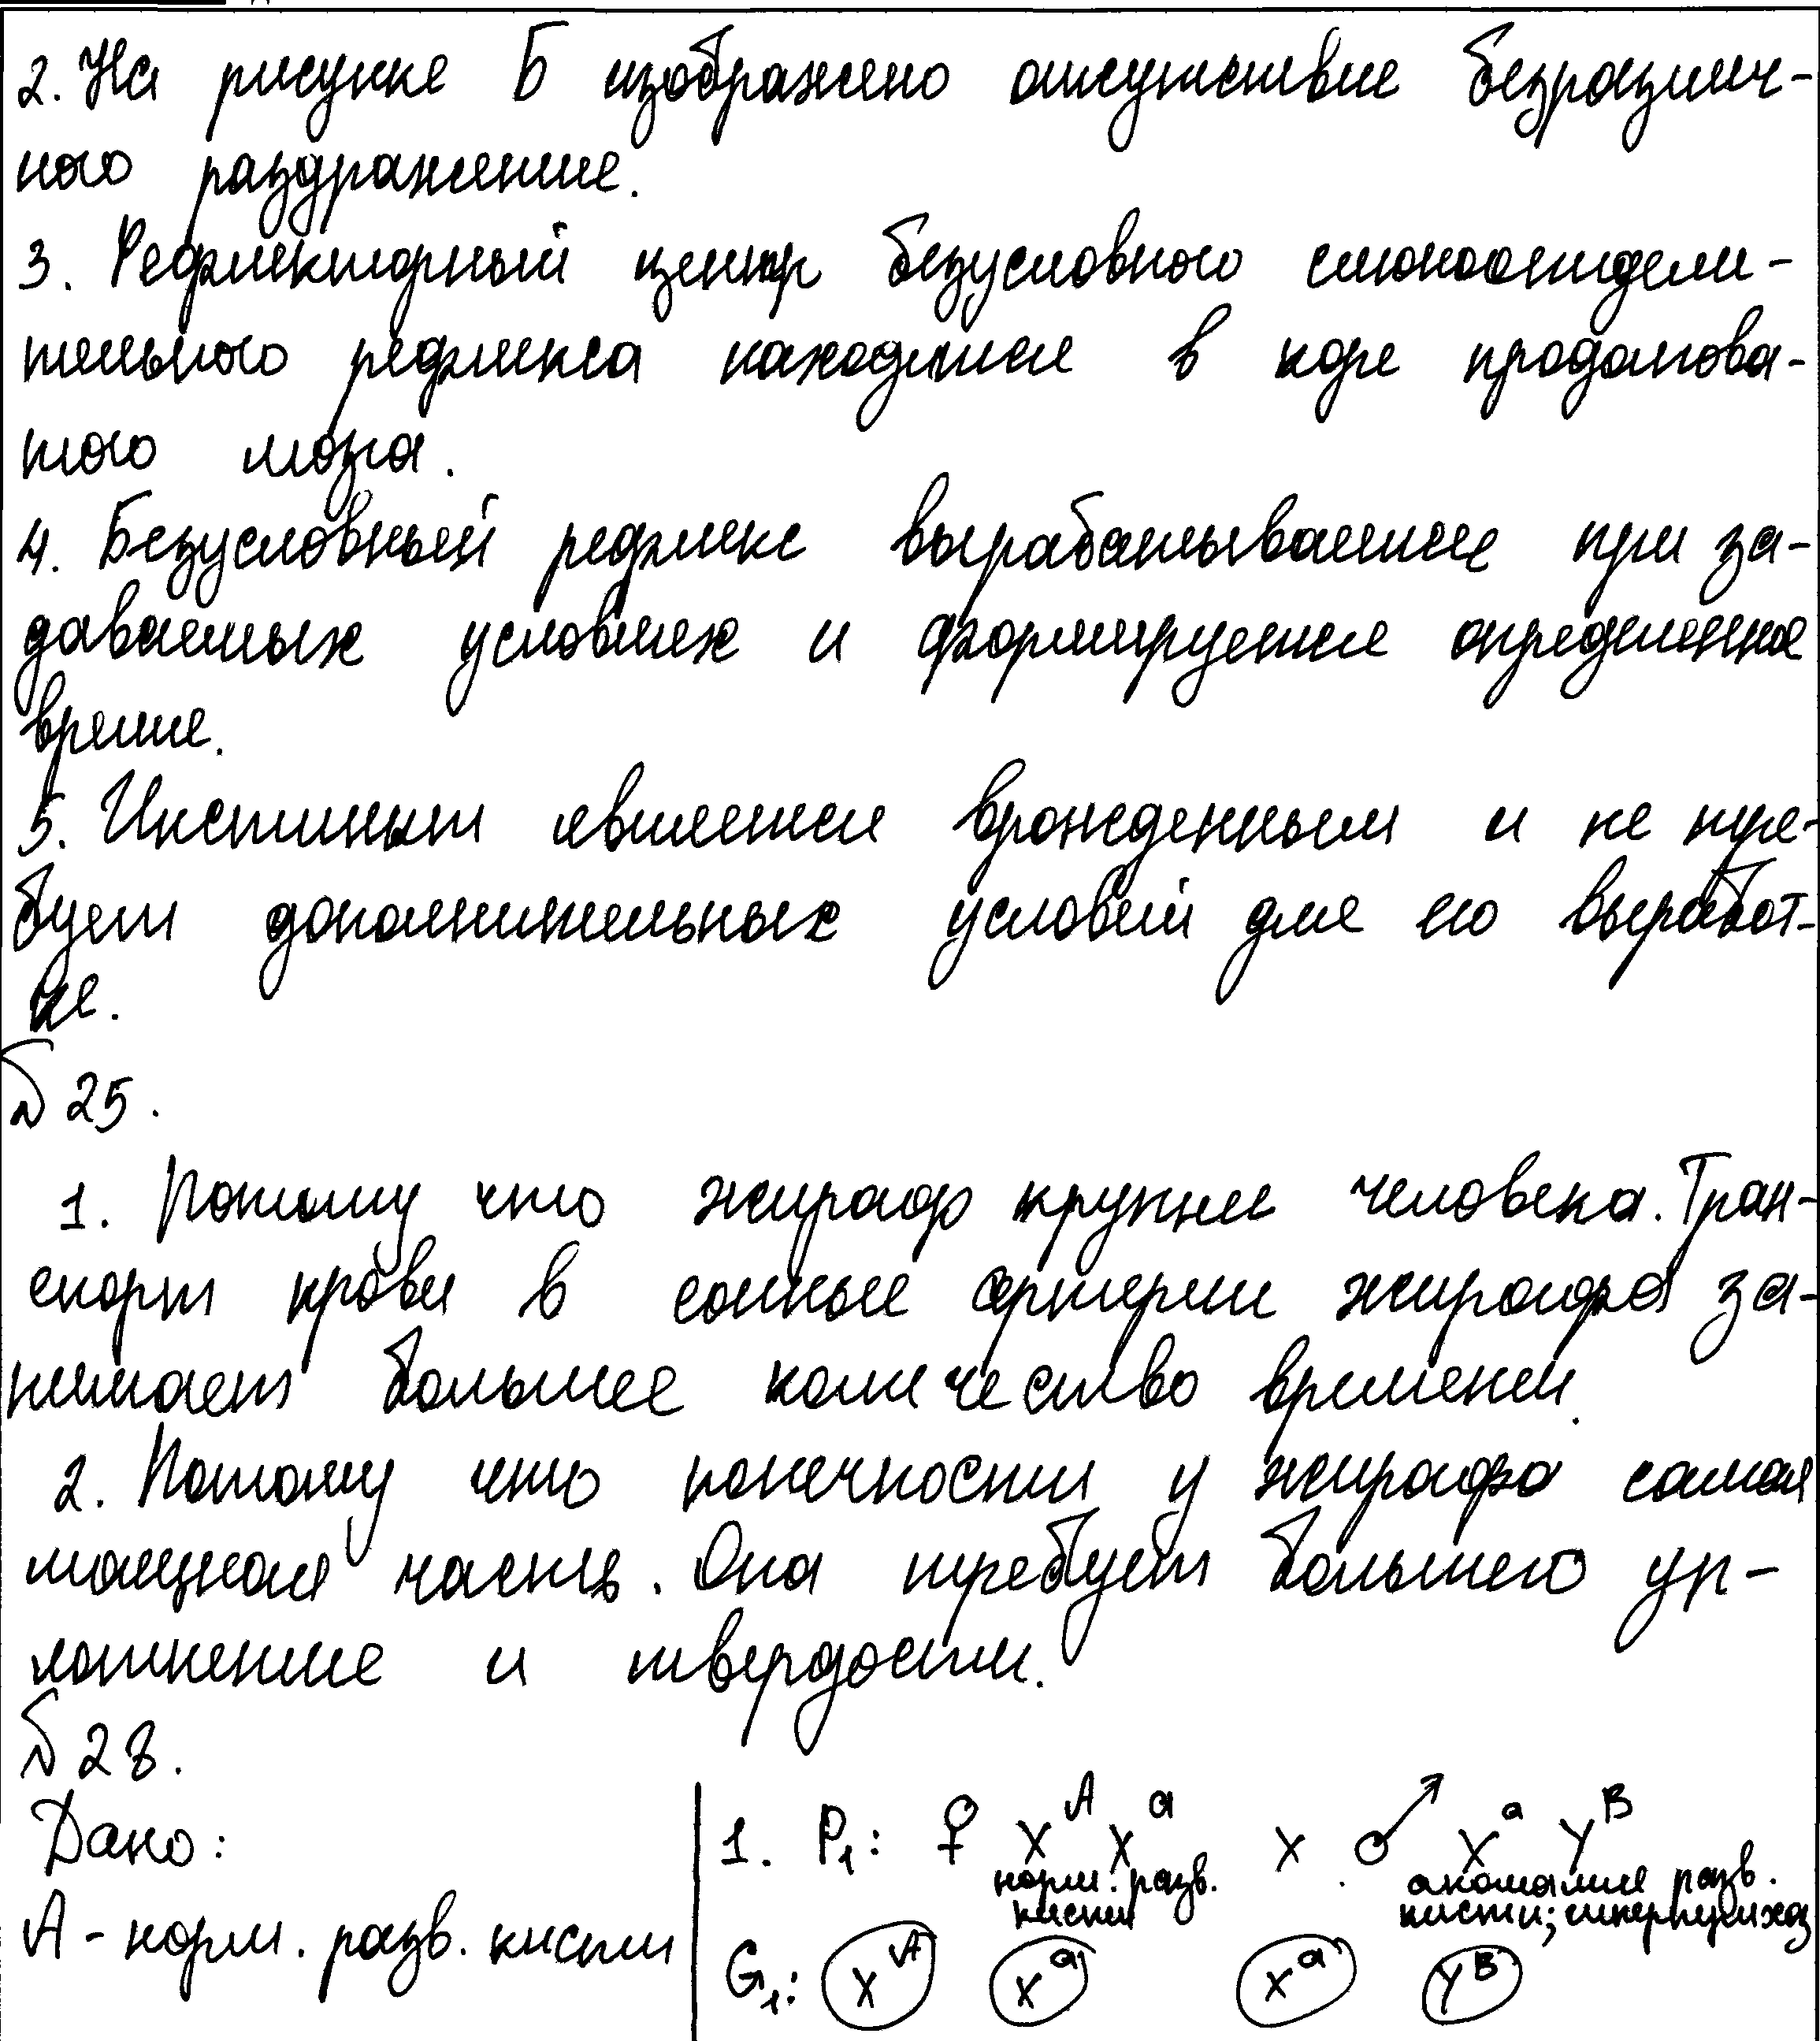 2. На рисунке Б изображено отсутствие безразлич-
ного раздражение.
3. Рефлекторный центр безусловного слюноотдели-
тельного рефлекса находится в коре продолгова-
того мозга.
4. Безусловный рефлекс вырабатывается при за-
даваемых условиях и формируется определенное
время.
5. Инстинкт является врожденным и не тре-
бует дополнительных условий для его выработ-
ке.
№ 25.
1. Потому что жираф крупнее человека. Тран-
спорт крови в сонные артерии жирафа за-
нимает большее количество времени.
2. Потому что конечности у жирафа самая
мощная часть. Она требует большего уп-
лотнение и твердости.
№ 28.
Дано:
1. P₁: ♀ X^A X^a x ♂ X^a Y^B
норм. разв. аномалие разв.
кисти кисти; гипертрихоз
А - норм. разв. кисти
G₁: X^A X^a X^a Y^B